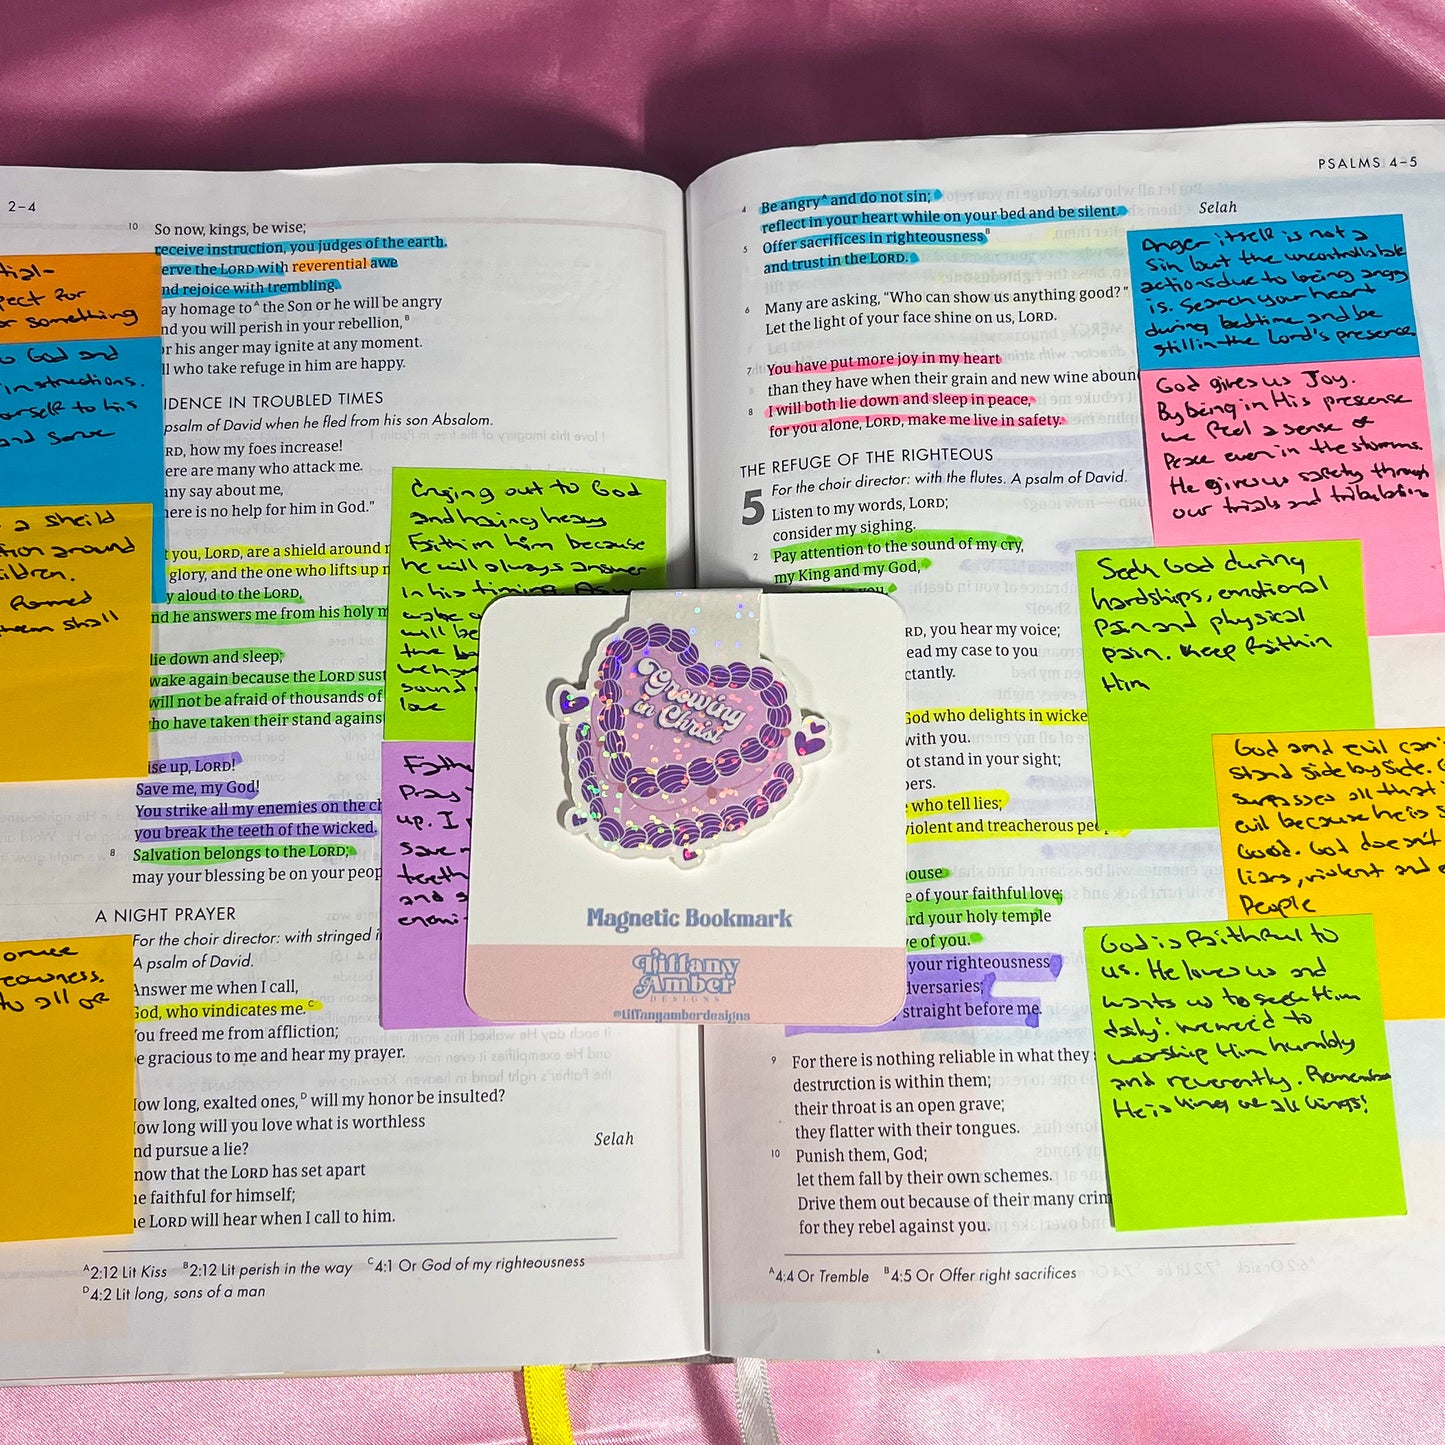 2–4
10 So now, kings, be wise;
receive instruction, you judges of the earth.
erve the LORD with reverential awe
nd rejoice with trembling.
ay homage to^A the Son or he will be angry
nd you will perish in your rebellion,^B
r his anger may ignite at any moment.
ll who take refuge in him are happy.
IDENCE IN TROUBLED TIMES
psalm of David when he fled from his son Absalom.
RD, how my foes increase!
ere are many who attack me.
any say about me,
here is no help for him in God."
t you, LORD, are a shield around
glory, and the one who lifts up
y aloud to the LORD,
nd he answers me from his holy
lie down and sleep;
wake again because the LORD sust
will not be afraid of thousands of
ho have taken their stand against
ise up, LORD!
Save me, my God!
You strike all my enemies on the ch
you break the teeth of the wicked.
8 Salvation belongs to the LORD;
may your blessing be on your peop
A NIGHT PRAYER
For the choir director: with stringed i
A psalm of David.
Answer me when I call,
God, who vindicates me.^C
You freed me from affliction;
e gracious to me and hear my prayer.
How long, exalted ones,^D will my honor be insulted?
How long will you love what is worthless
nd pursue a lie? Selah
now that the LORD has set apart
he faithful for himself;
he LORD will hear when I call to him.
^A2:12 Lit Kiss ^B2:12 Lit perish in the way ^C4:1 Or God of my righteousness
^D4:2 Lit long, sons of a man
tial-
pect for
or something
o God and
instructions.
ourself to his
and serve
a sheild
tion around
ildren.
them shall
to all of
Crying out to God
and having heavy
Faith in him because
he will always answer
in his timing.
will be
sound
love
Pray
up. I
save
teeth
and s
enemi
PSALMS 4–5
4 Be angry^A and do not sin;
reflect in your heart while on your bed and be silent. Selah
5 Offer sacrifices in righteousness^B
and trust in the LORD.
6 Many are asking, "Who can show us anything good?"
Let the light of your face shine on us, LORD.
7 You have put more joy in my heart
than they have when their grain and new wine aboun
8 I will both lie down and sleep in peace,
for you alone, LORD, make me live in safety.
THE REFUGE OF THE RIGHTEOUS
5 For the choir director: with the flutes. A psalm of David.
Listen to my words, LORD;
consider my sighing.
2 Pay attention to the sound of my cry,
my King and my God,
to you.
RD, you hear my voice;
ead my case to you
ctantly.
God who delights in wicke
with you.
ot stand in your sight;
pers.
who tell lies;
violent and treacherous peo
house
e of your faithful love;
rd your holy temple
ve of you.
your righteousness
dversaries;
straight before me.
9 For there is nothing reliable in what they s
destruction is within them;
their throat is an open grave;
they flatter with their tongues.
10 Punish them, God;
let them fall by their own schemes.
Drive them out because of their many crim
for they rebel against you.
^A4:4 Or Tremble ^B4:5 Or Offer right sacrifices
Anger itself is not a
sin but the uncontrollable
actions due to being angry
is. Search your heart
during bedtime and be
still in the Lord's presence
God gives us Joy.
By being in His presense
we feel a sense of
Peace even in the storms.
He gives us safety through
our trials and tribulation
Seek God during
hardships, emotional
Pain and physical
pain. Keep Faith in
Him
God and evil can'
stand side by side. G
surpasses all that i
evil because he is s
Good. God doesn't
liars, violent and e
People
God is Faithful to
us. He loves us and
wants us to seek Him
daily! We need to
worship Him humbly
and reverently. Remember
He is King of all kings!
Growing
in Christ
Magnetic Bookmark
Tiffany
Amber
DESIGNS
@tiffanyamberdesigns